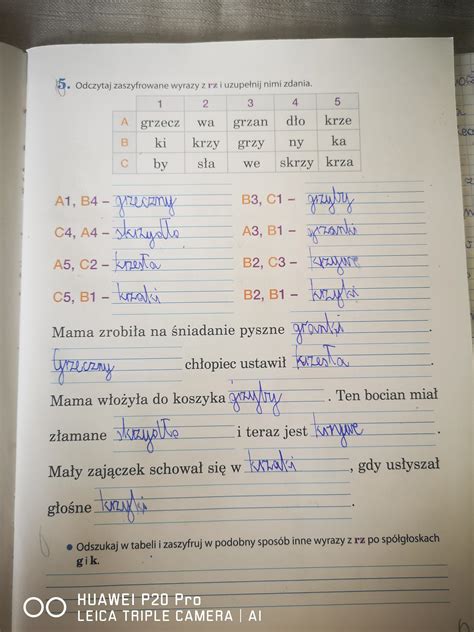 5. Odczytaj zaszyfrowane wyrazy z rz i uzupełnij nimi zdania.
1 2 3 4 5
A grzecz wa grzan dło krze
B ki krzy grzy ny ka
C by sła we skrzy krza
A1, B4 – grzeczny B3, C1 – grzyby
C4, A4 – skrzydło A3, B1 – grzanki
A5, C2 – krzesła B2, C3 – krzywe
C5, B1 – krzaki B2, B1 – krzyki
Mama zrobiła na śniadanie pyszne granki.
Grzeczny chłopiec ustawił krzesła.
Mama włożyła do koszyka grzyby. Ten bocian miał
złamane skrzydło i teraz jest krzywe.
Mały zajączek schował się w krzaki, gdy usłyszał
głośne krzyki.
• Odszukaj w tabeli i zaszyfruj w podobny sposób inne wyrazy z rz po spółgłoskach
g i k.
HUAWEI P20 Pro
LEICA TRIPLE CAMERA | AI